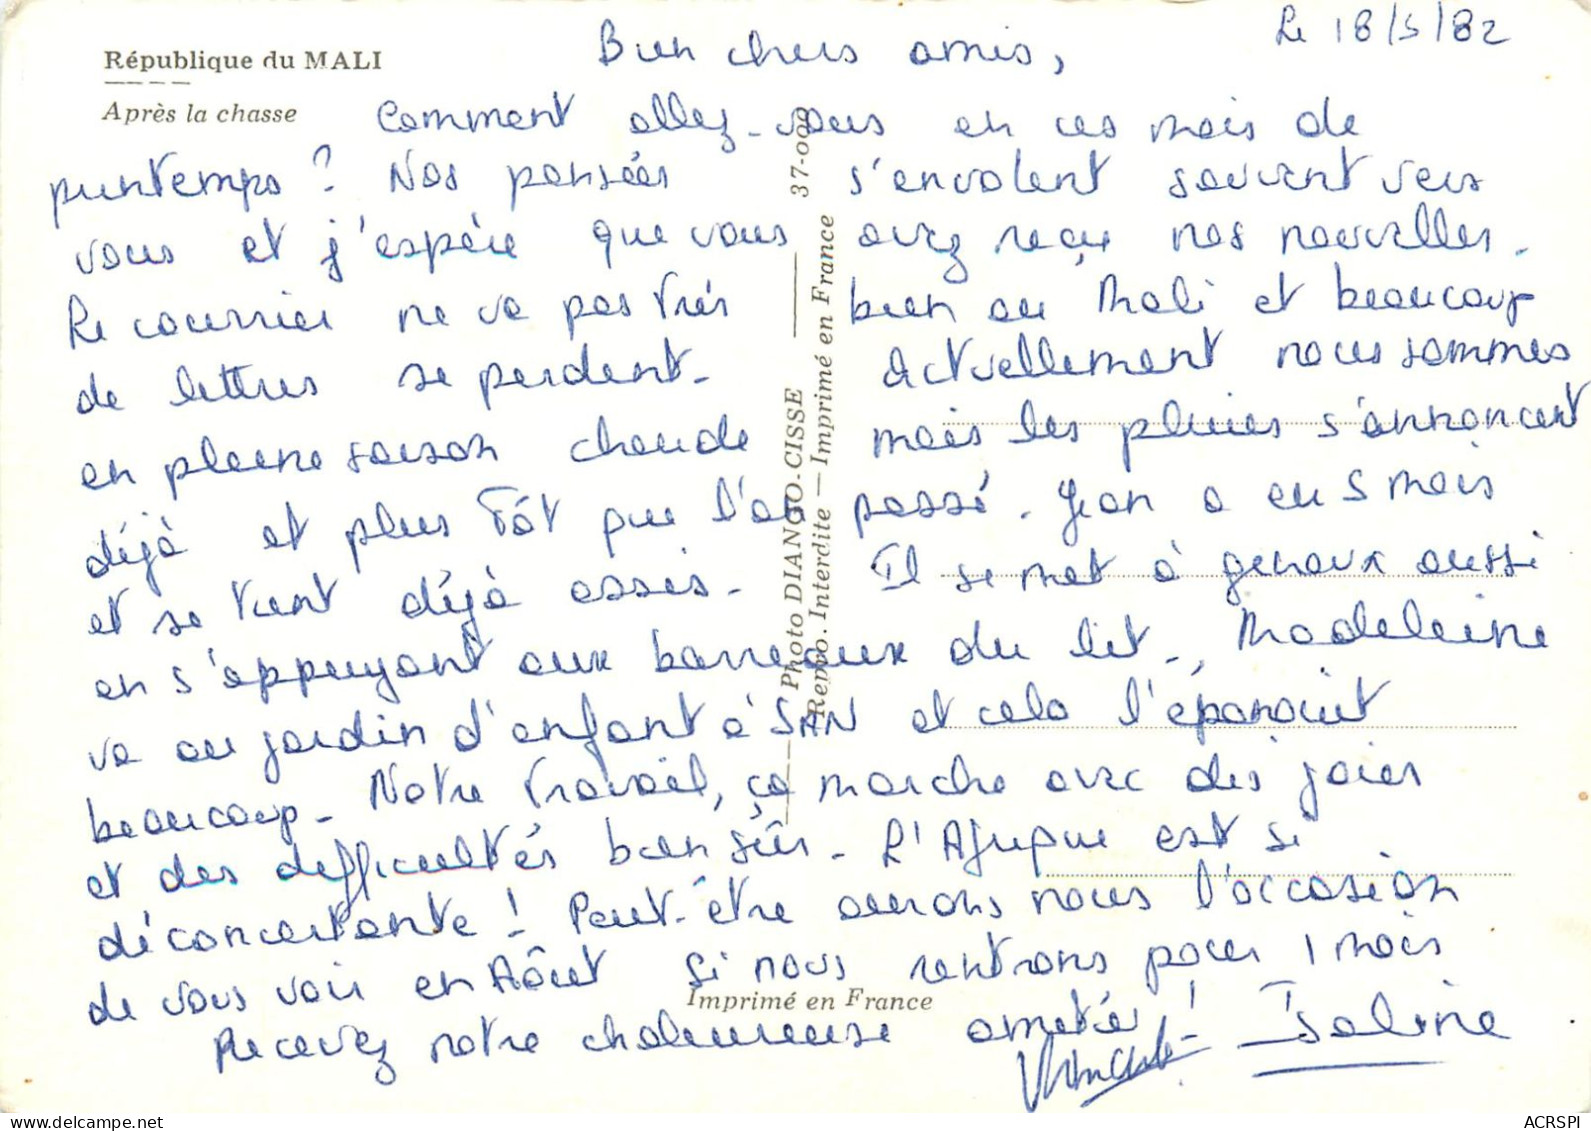 République du MALI
Après la chasse
Le 18/5/82
Bien chers amis,
Comment allez-vous en ces mois de
printemps ? Nos pensées s'envolent souvent vers
vous et j'espère que vous avez reçu nos nouvelles.
Le courrier ne va pas très bien au Mali et beaucoup
de lettres se perdent. Actuellement nous sommes
en pleine saison chaude mais les pluies s'annoncent
déjà et plus tôt que l'an passé. Jean a eu 5 mois
et se tient déjà assis. Il se met à genoux aussi
en s'appuyant aux barreaux du lit. Madeleine
va au jardin d'enfant à SAN et cela l'épanouit
beaucoup. Notre travail, ça marche avec des joies
et des difficultés bien sûr. L'Afrique est si
déconcertante ! Peut-être aurons nous l'occasion
de vous voir en Août si nous rentrons pour 1 mois
Recevez notre chaleureuse amitié !
Isaline
Photo DIANGO-CISSE 37-009
Repro. Interdite — Imprimé en France
Imprimé en France
ACRSPI